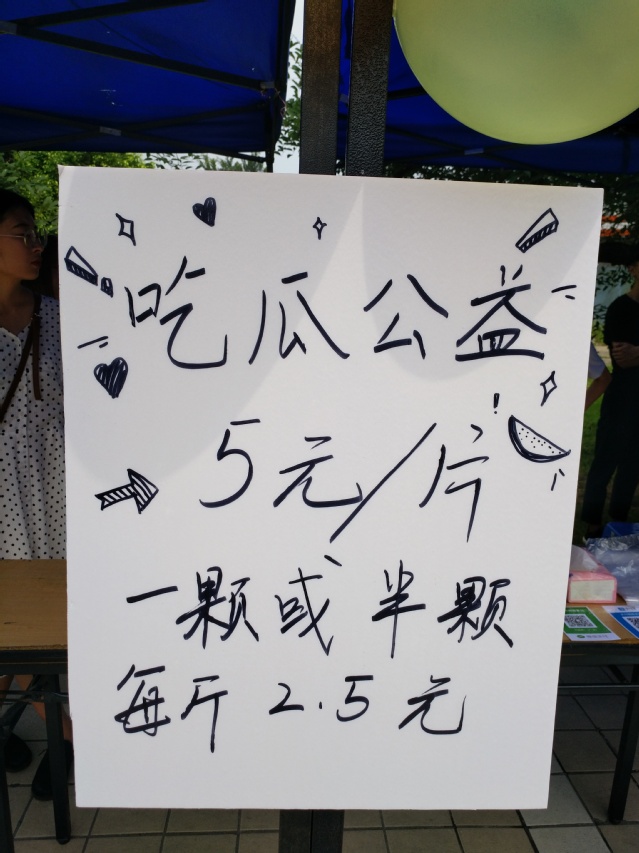 吃瓜公益
5元/片
一颗或半颗
每斤2.5元